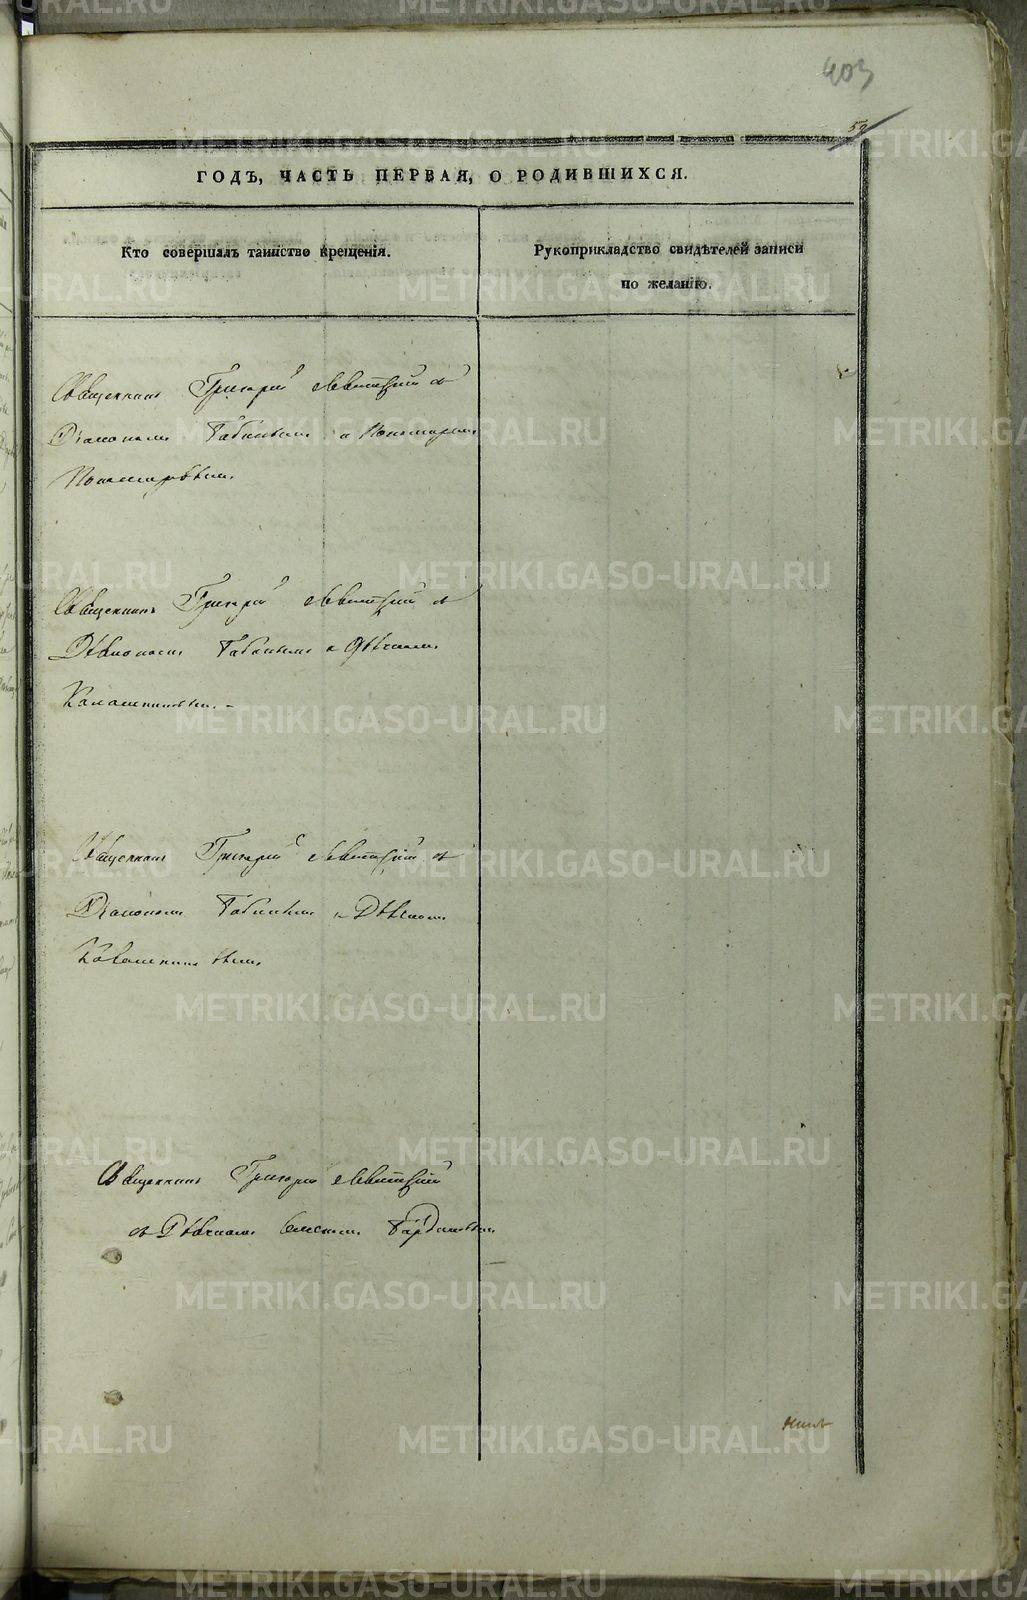 403
52
ГОДЪ, ЧАСТЬ ПЕРВАЯ, О РОДИВШИХСЯ.
Кто совершалъ таинство крещенія.
Рукоприкладство свидѣтелей записи
по желанію.
Священникъ Григорій Левитскій съ
Діакономъ Бабинымъ и Пономаремъ
Пономаревымъ.
Священникъ Григорій Левитскій съ
Діакономъ Бабинымъ и Дьячкомъ
Калашниковымъ.
Священникъ Григорій Левитскій съ
Діакономъ Бабинымъ и Дьячкомъ
Калашниковымъ.
Священникъ Григорій Левитскій
съ Дьячкомъ
METRIKI.GASO-URAL.RU